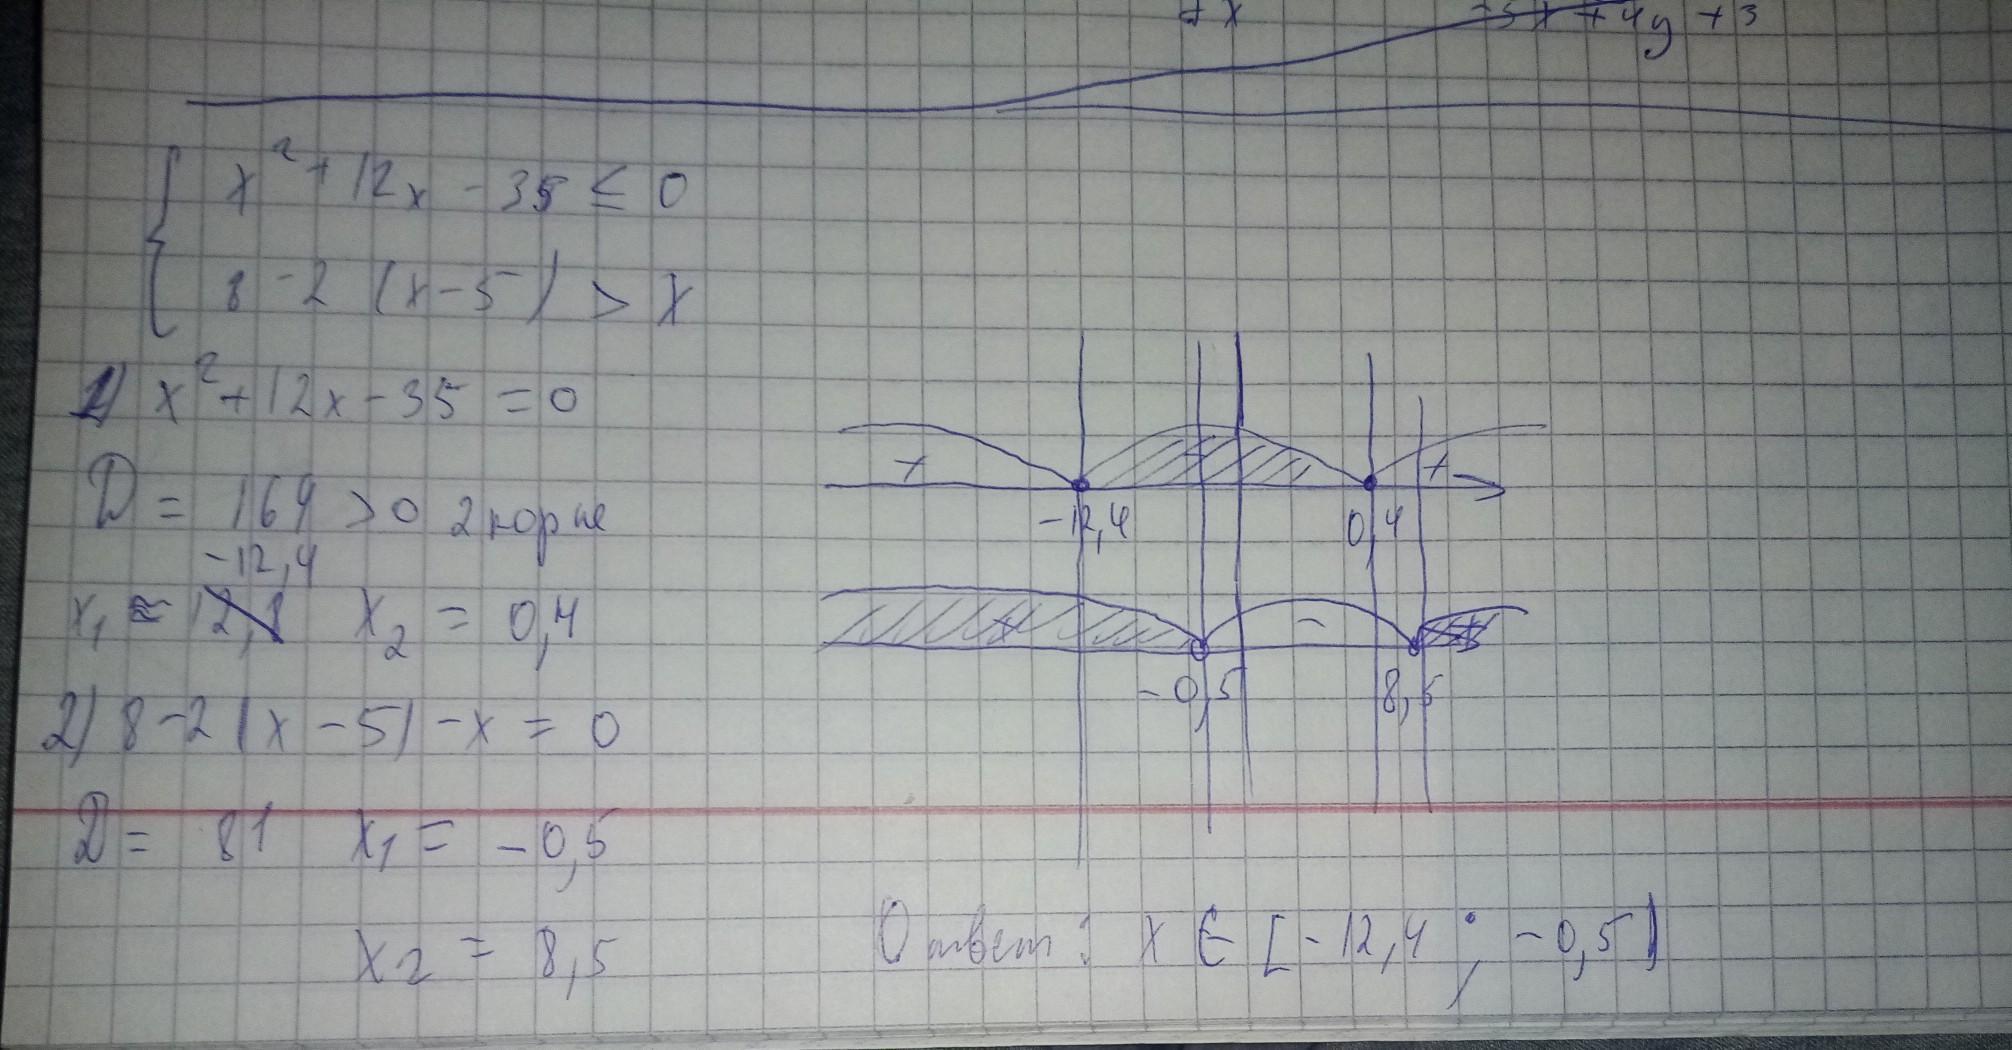 + x -5x + 4y + 3
x² + 12x - 35 ≤ 0
8 - 2 (x - 5) > x
1) x² + 12x - 35 = 0
D = 164 > 0 2 корне
-12,4
x₁ ≈ x₂ = 0,4
2) 8 - 2 (x - 5) - x = 0
D = 81 x₁ = -0,5
x₂ = 8,5
+ +
-12,4 0,4
+ - +
-0,5 8,5
Ответ: x ∈ [-12,4 ; -0,5)